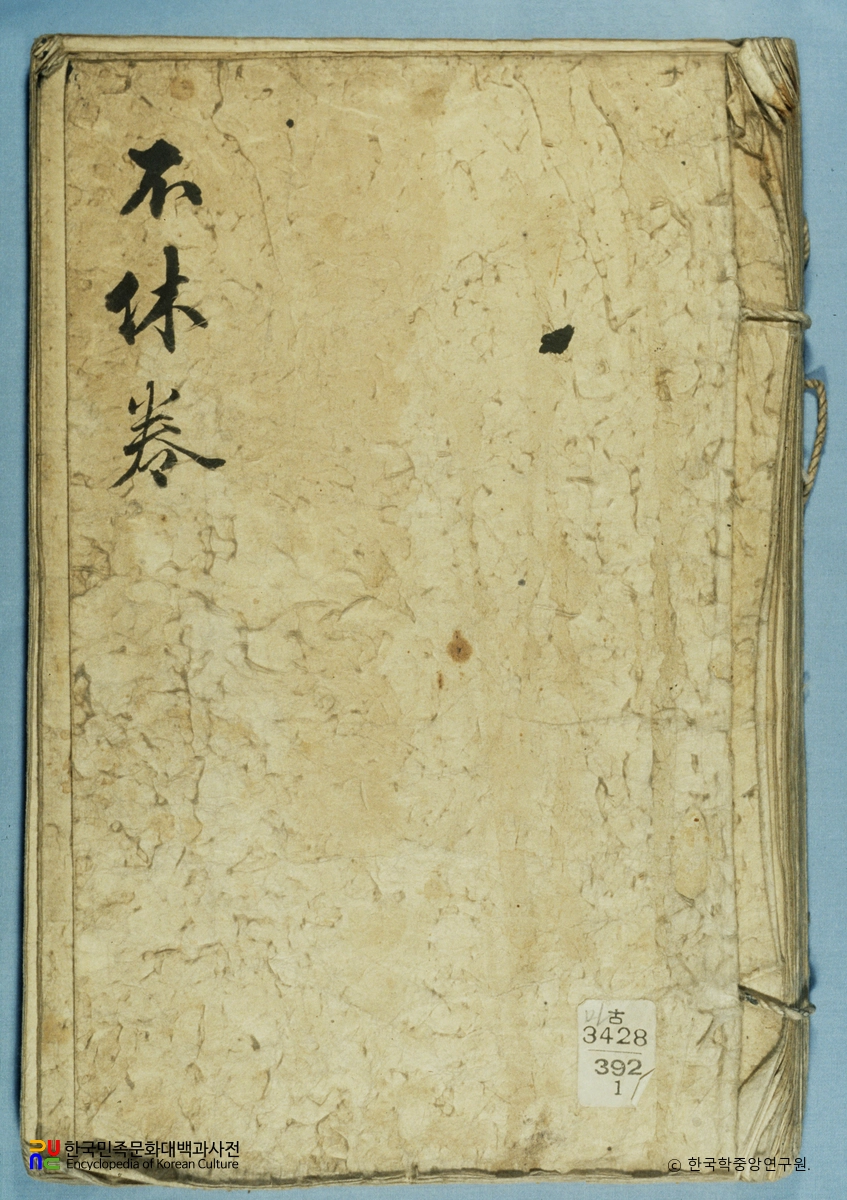 不休卷
古
3428
392
1
한국민족문화대백과사전
Encyclopedia of Korean Culture
© 한국학중앙연구원.